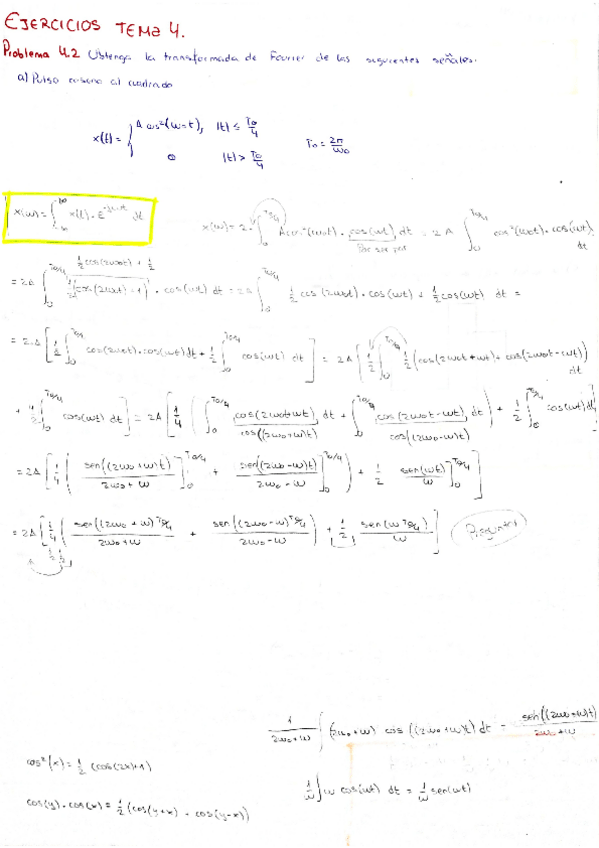 EJERCICIOS TEMA 4.
Problema 4.2 Obtenga la transformada de Fourier de las siguientes señales:
a) Pulso coseno al cuadrado
x(t) = { A cos²(ω₀t), |t| ≤ T₀/4
0 |t| > T₀/4
T₀ = 2π/ω₀
X(ω) = ∫_{-∞}^{∞} x(t) · e^{-jωt} dt
X(ω) = 2 · ∫_0^{T₀/4} A cos²(ω₀t) · cos(ωt) dt = 2A ∫_0^{T₀/4} cos²(ω₀t) · cos(ωt) dt
Por ser par
½ cos(2ω₀t) + ½
= 2A ∫_0^{T₀/4} ½(cos(2ω₀t) + 1) · cos(ωt) dt = 2A ∫_0^{T₀/4} ½ cos(2ω₀t) · cos(ωt) + ½ cos(ωt) dt =
= 2·A [ ½ ∫_0^{T₀/4} cos(2ω₀t) · cos(ωt) dt + ½ ∫_0^{T₀/4} cos(ωt) dt ] = 2A [ ½ ∫_0^{T₀/4} ½ (cos(2ω₀t + ωt) + cos(2ω₀t - ωt)) dt
+ ½ ∫_0^{T₀/4} cos(ωt) dt ] = 2A [ ¼ ( ∫_0^{T₀/4} cos(2ω₀t + ωt) dt + ∫_0^{T₀/4} cos(2ω₀t - ωt) dt ) + ½ ∫_0^{T₀/4} cos(ωt) dt ]
cos((2ω₀+ω)t) cos((2ω₀-ω)t)
= 2A [ ¼ ( sen((2ω₀+ω)t) / 2ω₀+ω ]_0^{T₀/4} + sen((2ω₀-ω)t) / 2ω₀-ω ]_0^{T₀/4} ) + ½ sen(ωt) / ω ]_0^{T₀/4} ]
= 2A [ ¼ ( sen((2ω₀+ω) T₀/4) / 2ω₀+ω + sen((2ω₀-ω) T₀/4) / 2ω₀-ω ) + ½ sen(ω T₀/4) / ω ] Preguntar
½ ½
1 / 2ω₀+ω ∫ (2ω₀+ω) cos((2ω₀+ω)t) dt = sen((2ω₀+ω)t) / 2ω₀+ω
cos²(x) = ½ (cos(2x)+1)
1/ω ∫ ω cos(ωt) dt = 1/ω sen(ωt)
cos(y) · cos(x) = ½ (cos(y+x) + cos(y-x))